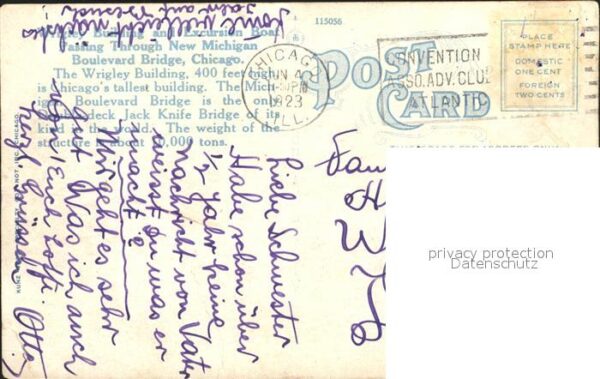 115056
Wrigley Building and Excursion Boat
Passing Through New Michigan
Boulevard Bridge, Chicago.
The Wrigley Building, 400 feet high,
is Chicago's tallest building. The Mich-
Boulevard Bridge is the only
deck Jack Knife Bridge of its
kind in the world. The weight of the
structure is about 10,000 tons.
POST CARD
CHICAGO
JUN 4
PM
1923
ILL.
CONVENTION
ASSO. ADV. CLUB
ATLANTIC
PLACE
STAMP HERE
DOMESTIC
ONE CENT
FOREIGN
TWO CENTS
Liebe Schwester
Habe schon über
1/2 Jahr keine
Nachricht von Vater
weisst Du was er
macht?
Mir geht es sehr
gut was ich auch
von Euch hoffe.
Hzl. Grüssen Otto
Komme vielleicht nächstes
Jahr auf Besuch
privacy protection
Datenschutz